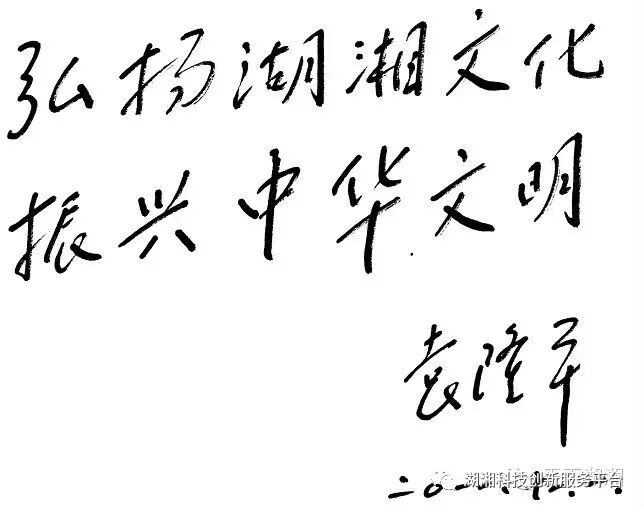 弘扬湖湘文化
振兴中华文明
袁隆平
湖湘科技创新服务平台